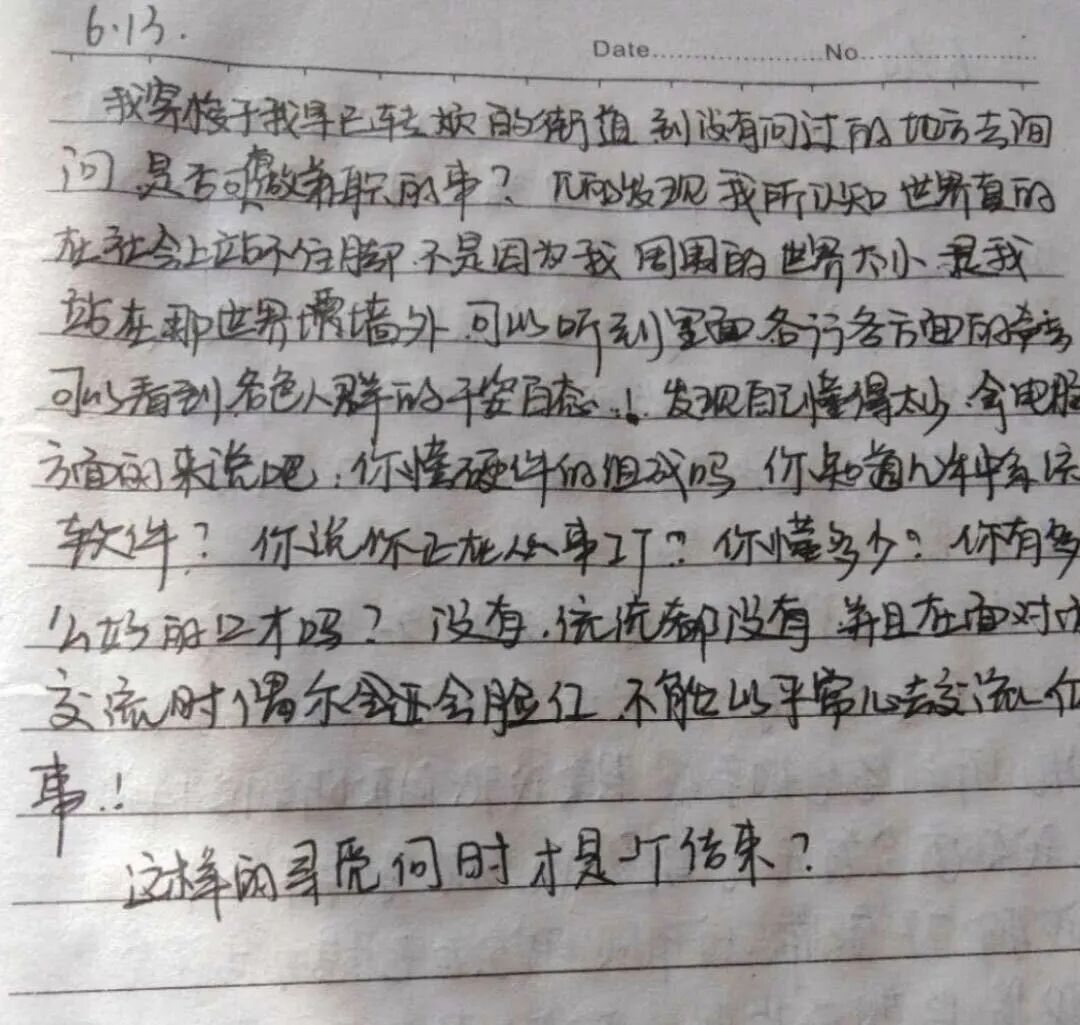 6.13.
Date No
我穿梭于我早已转去烦的街道 到没有问过的地方去问
问 是否可 做兼职的事? 发现我所认知 世界真的
在社会上站不住脚 不是因为我 周围的世界太小 是我
站在那世界 墙外 可以听到里面各行各方面的
可以看到 各色人群的千姿百态..! 发现自己懂得太少 会电脑
方面的来说吧.你懂硬件的组成吗 你知道几种系统
软件? 你说你正在从事IT? 你懂多少? 你有多
么好的口才吗? 没有.统统都没有 并且在面对
交流时偶尔会还会脸红 不能以平常心去交流
事.!
这样的寻觅何时才是个结束?